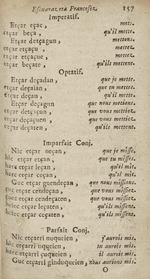 Escuarac eta Francesez, 157
Imperatif.
Etçar eçac, mets.
etçar beça, qu'il mette.
Etçar deçagun, mettons.
etçar eçaçu, mettez.
etçar etçaçue, mettez.
etçar beçate, qu'ils mettent.
Optatif.
Etçar deçadan, que je mette,
etçar deçan, que tu mettes.
etçar deçan, qu'il mette.
Etçar deçagun, que nous mettions,
etçar deçaçun, que vous mettiez.
etçar deçaten, qu'ils mettent.
Imparfait Conj.
Nic etçar neçan, que je misse,
hic etçar que tu misses.
etçar leçan, qu'il mist.
Guc etçar guendeçan, que nous missions,
etçar cendeçan, que vous missiez.
etçar leçaten, qu'ils missent.
Parfait Conj.
Nic etçarri j'aurois mis.
etçarri tu aurois mis.
etçarri il auroit mis.
Guc etçarri nous aurions mis.
O